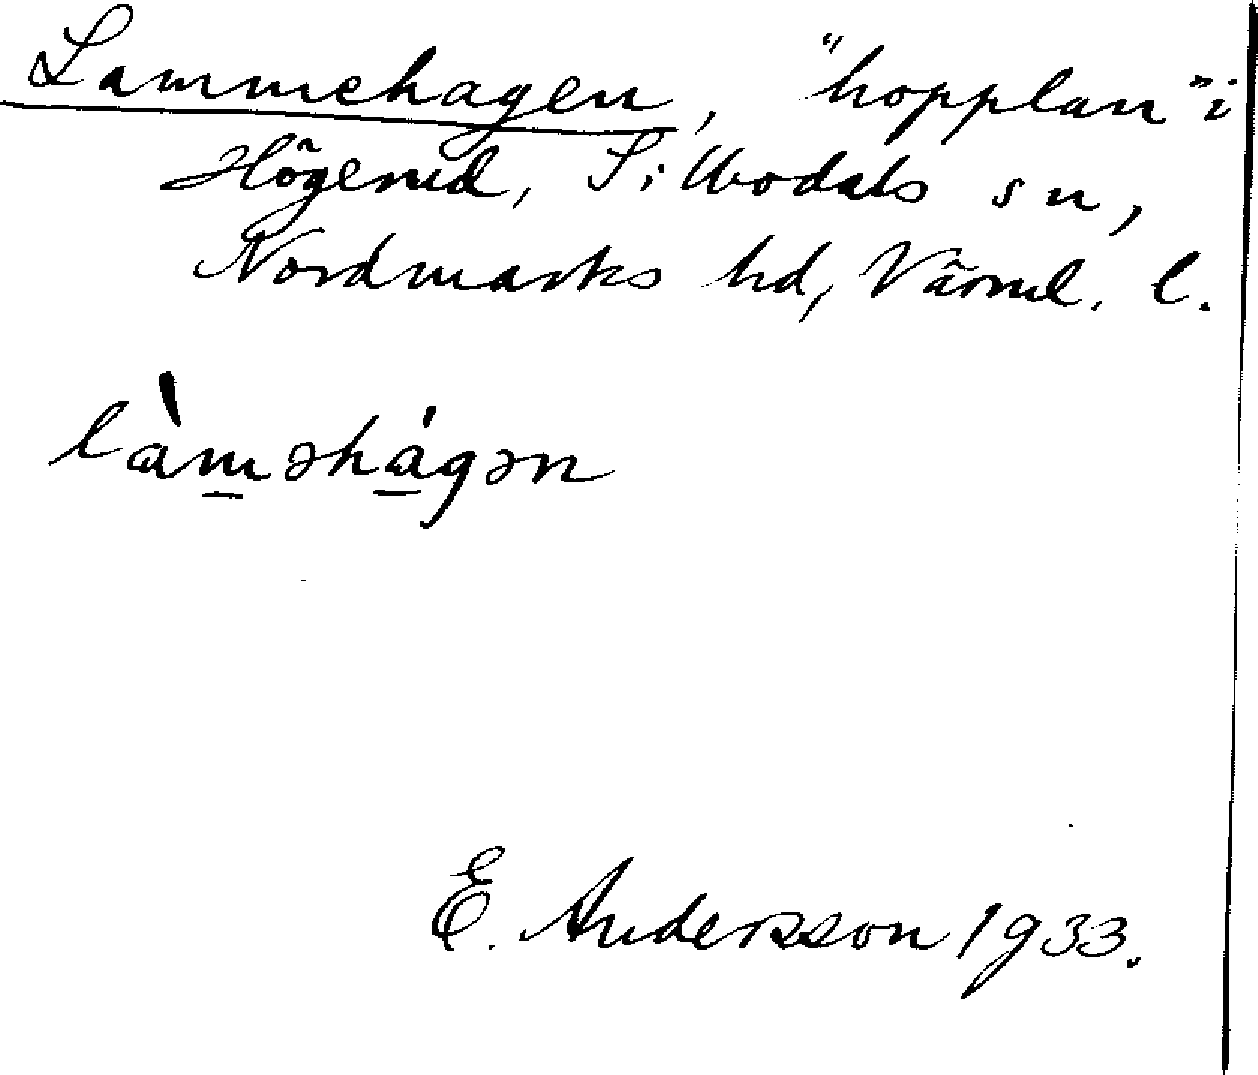 Lammehagen, "hopplan" i
Högerud, Sillbodals sn,
Nordmarks hd, Värml. l.
làm̱əhá̱gən
E. Andersson 1933.